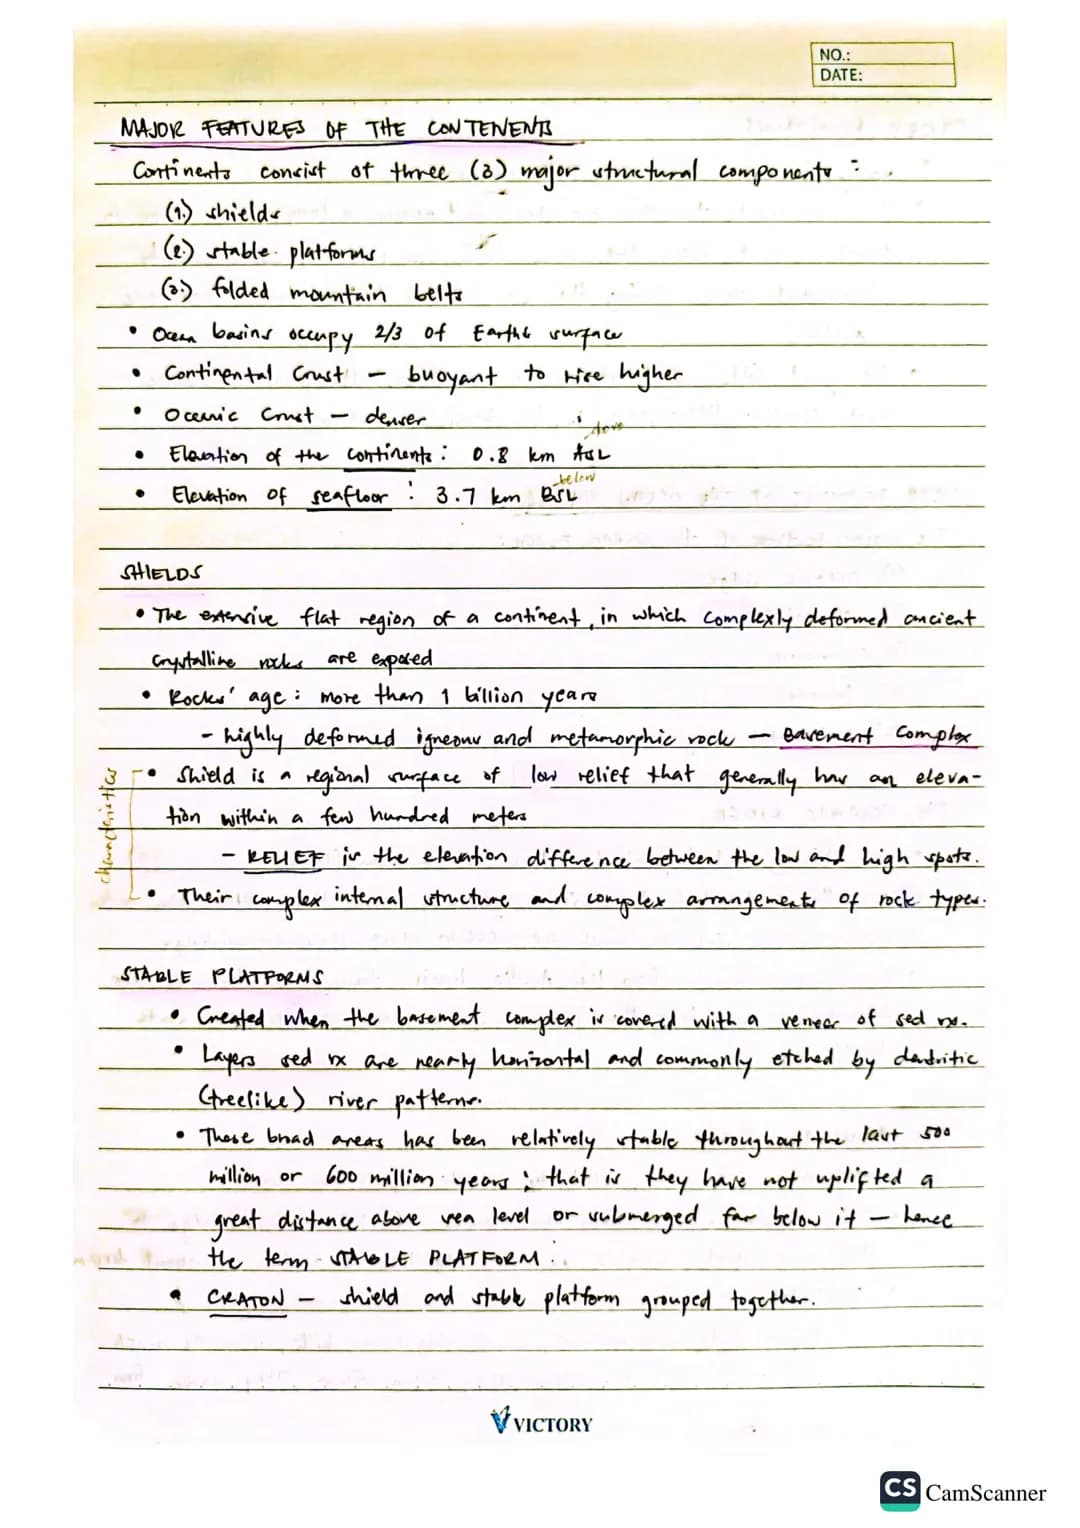 NO.:
DATE:
MAJOR FEATURES OF THE CONTENENTS
Continents consist of three (3) major structural components :
(1.) shields
(2.) stable platforms
(3.) folded mountain belts
• Ocean basins occupy 2/3 of Earth's surface
• Continental Crust – buoyant to rise higher
• Oceanic Crust – denser
above
• Elevation of the continents : 0.8 km ASL
below
• Elevation of seafloor : 3.7 km BSL
SHIELDS
• The extensive flat region of a continent, in which complexly deformed ancient
crystalline rocks are exposed
• Rocks' age : more than 1 billion years
- highly deformed igneous and metamorphic rock – Basement Complex
characteristics
• Shield is a regional surface of low relief that generally has an eleva-
tion within a few hundred meters
- RELIEF is the elevation difference between the low and high spots.
• Their complex internal structure and complex arrangements of rock types.
STABLE PLATFORMS
• Created when the basement complex is covered with a veneer of sed rx.
• Layers sed rx are nearly horizontal and commonly etched by dendritic
(treelike) river patterns.
• These broad areas has been relatively stable throughout the last 500
million or 600 million years ; that is they have not uplifted a
great distance above sea level or submerged far below it – hence
the term STABLE PLATFORM.
• CRATON – shield and stable platform grouped together.
VICTORY
CS CamScanner